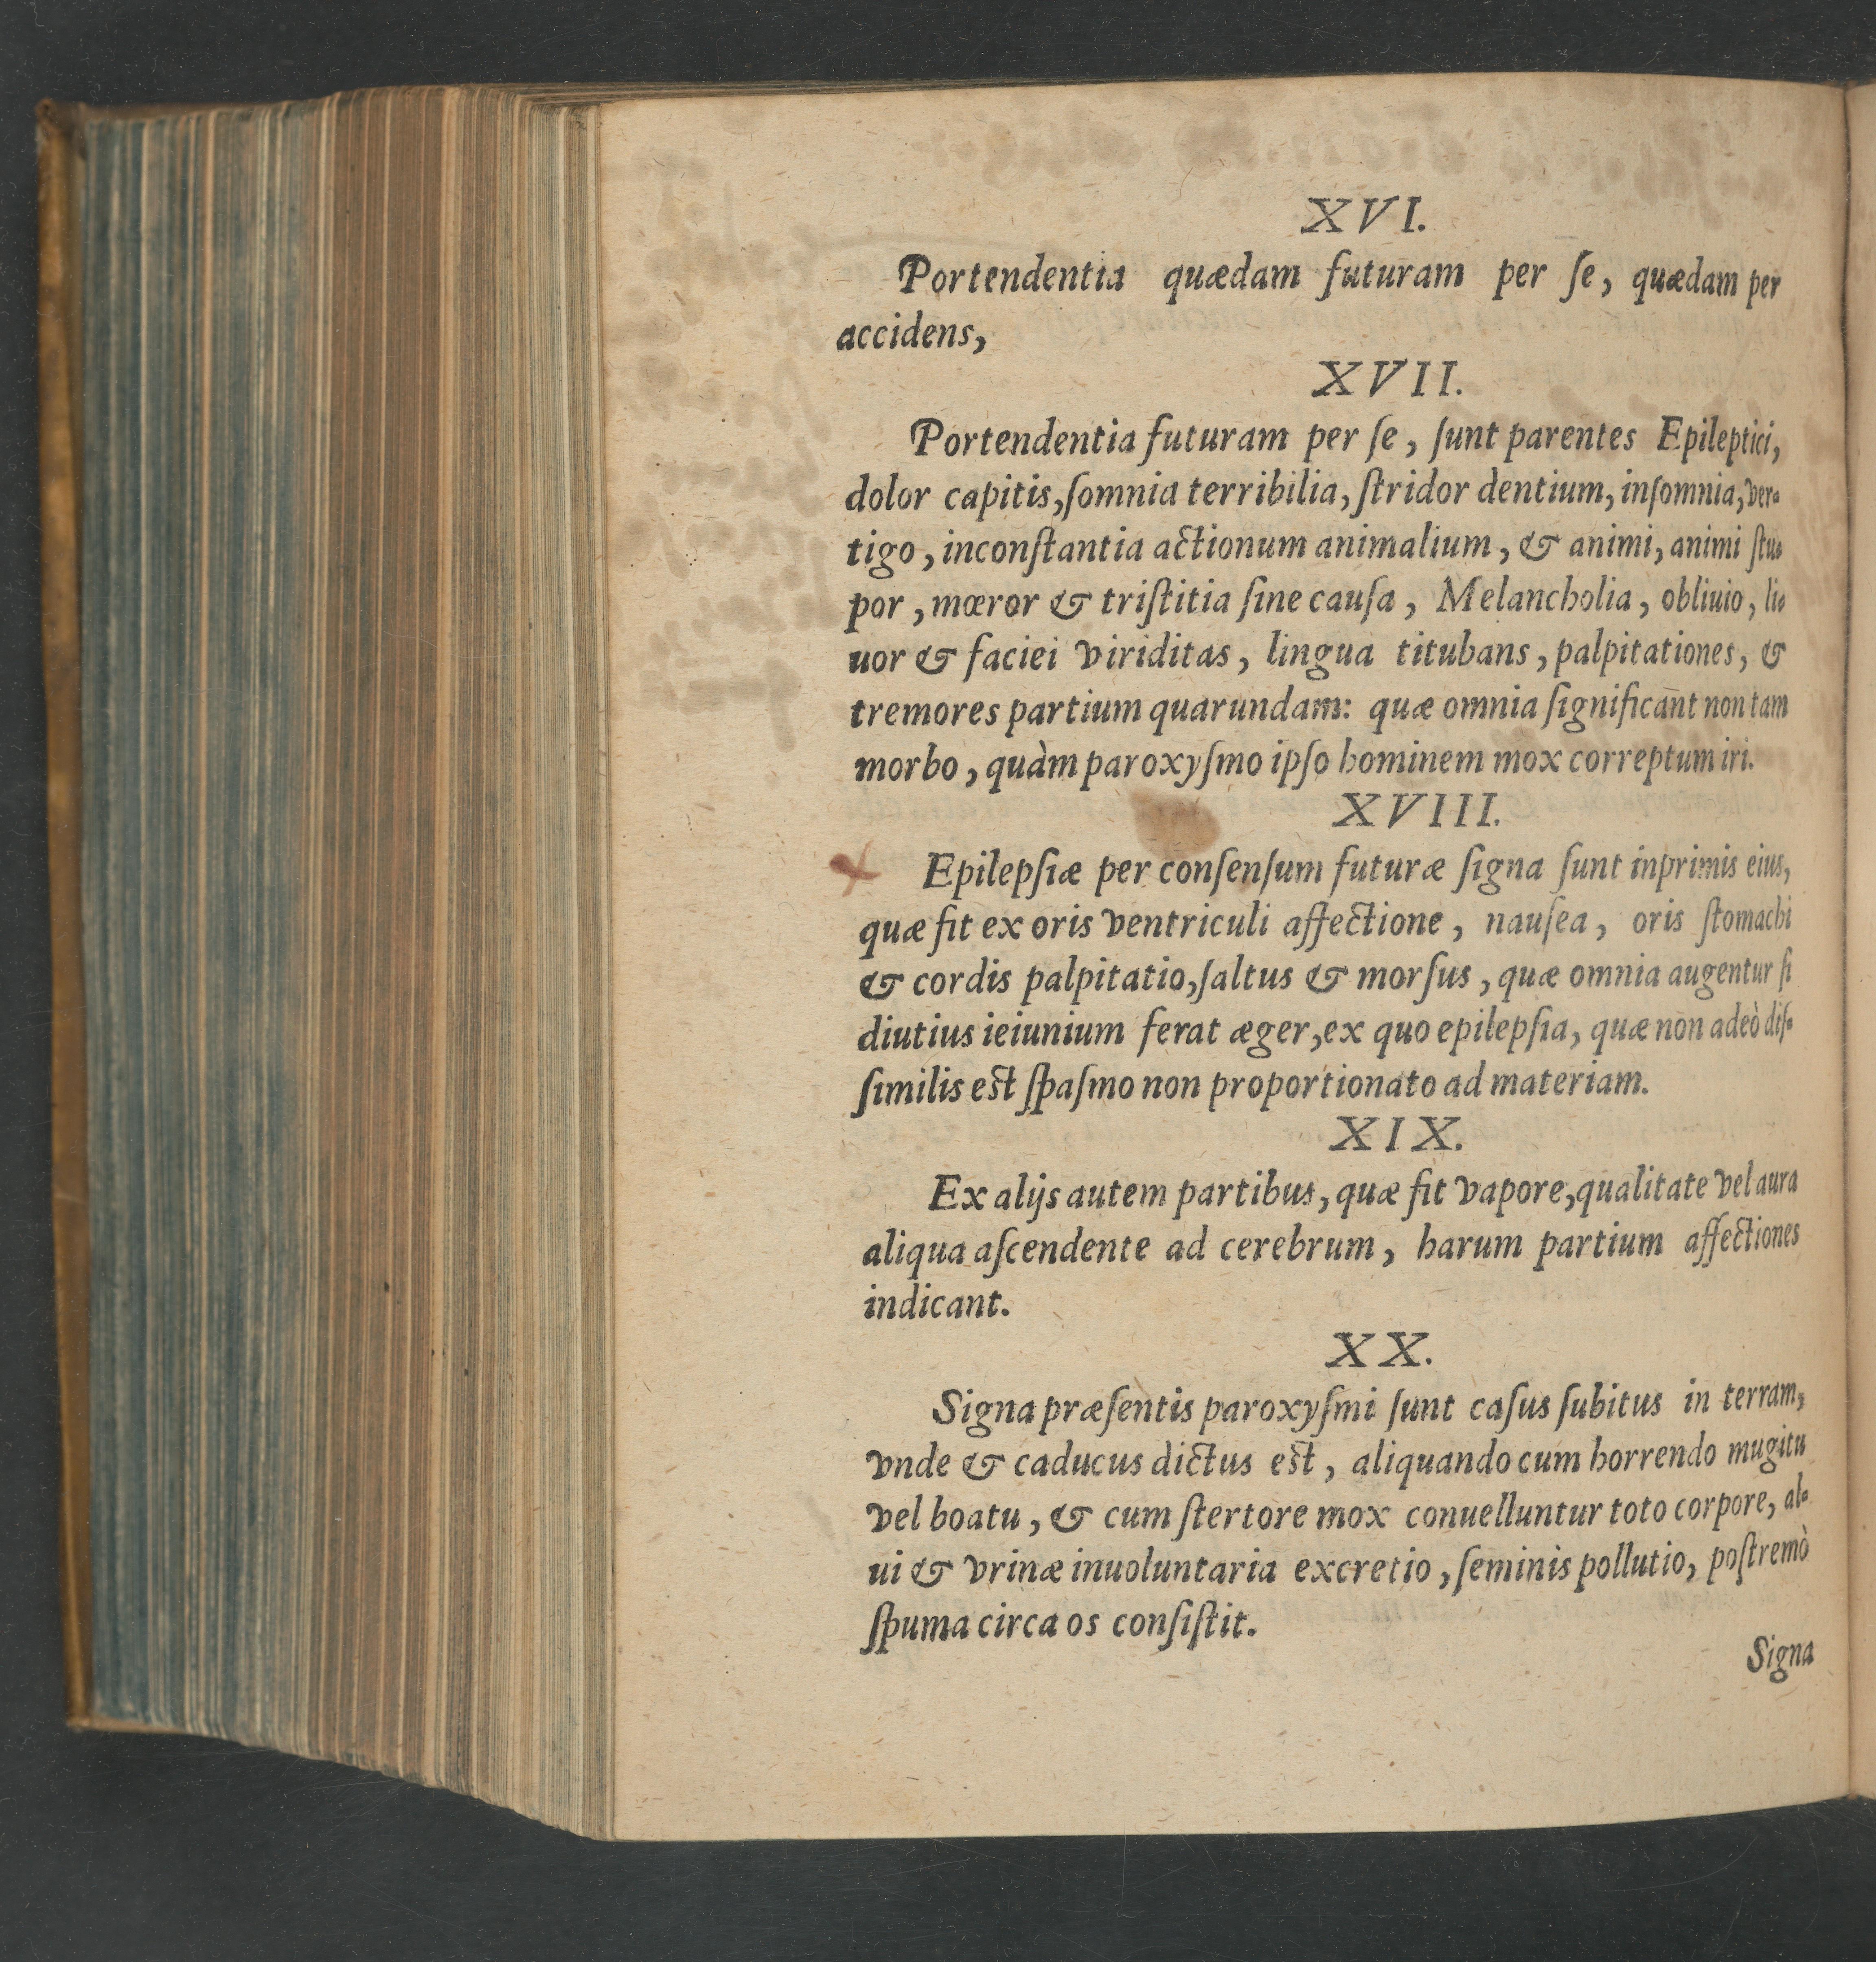 XVI.
Portendentia quædam futuram per ſe, quædam per
accidens,
XVII.
Portendentia futuram per ſe, ſunt parentes Epileptici,
dolor capitis, ſomnia terribilia, ſtridor dentium, inſomnia, ver-
tigo, inconſtantia actionum animalium, & animi, animi ſtu-
por, mœror & triſtitia ſine cauſa, Melancholia, obliuio, li-
uor & faciei viriditas, lingua titubans, palpitationes, &
tremores partium quarundam: quæ omnia ſignificant non tam
morbo, quàm paroxyſmo ipſo hominem mox correptum iri.
XVIII.
Epilepſiæ per conſenſum futuræ ſigna ſunt inprimis eius,
quæ fit ex oris ventriculi affectione, nauſea, oris ſtomachi
& cordis palpitatio, ſaltus & morſus, quæ omnia augentur ſi
diutius ieiunium ferat æger, ex quo epilepſia, quæ non adeò diſ-
ſimilis est ſpaſmo non proportionato ad materiam.
XIX.
Ex alijs autem partibus, quæ fit vapore, qualitate vel aura
aliqua aſcendente ad cerebrum, harum partium affectiones
indicant.
XX.
Signa præſentis paroxyſmi ſunt caſus ſubitus in terram,
vnde & caducus dictus est, aliquando cum horrendo mugitu
vel boatu, & cum ſtertore mox conuelluntur toto corpore, al-
ui & vrinæ inuoluntaria excretio, ſeminis pollutio, poſtremò
ſpuma circa os conſiſtit.
Signa